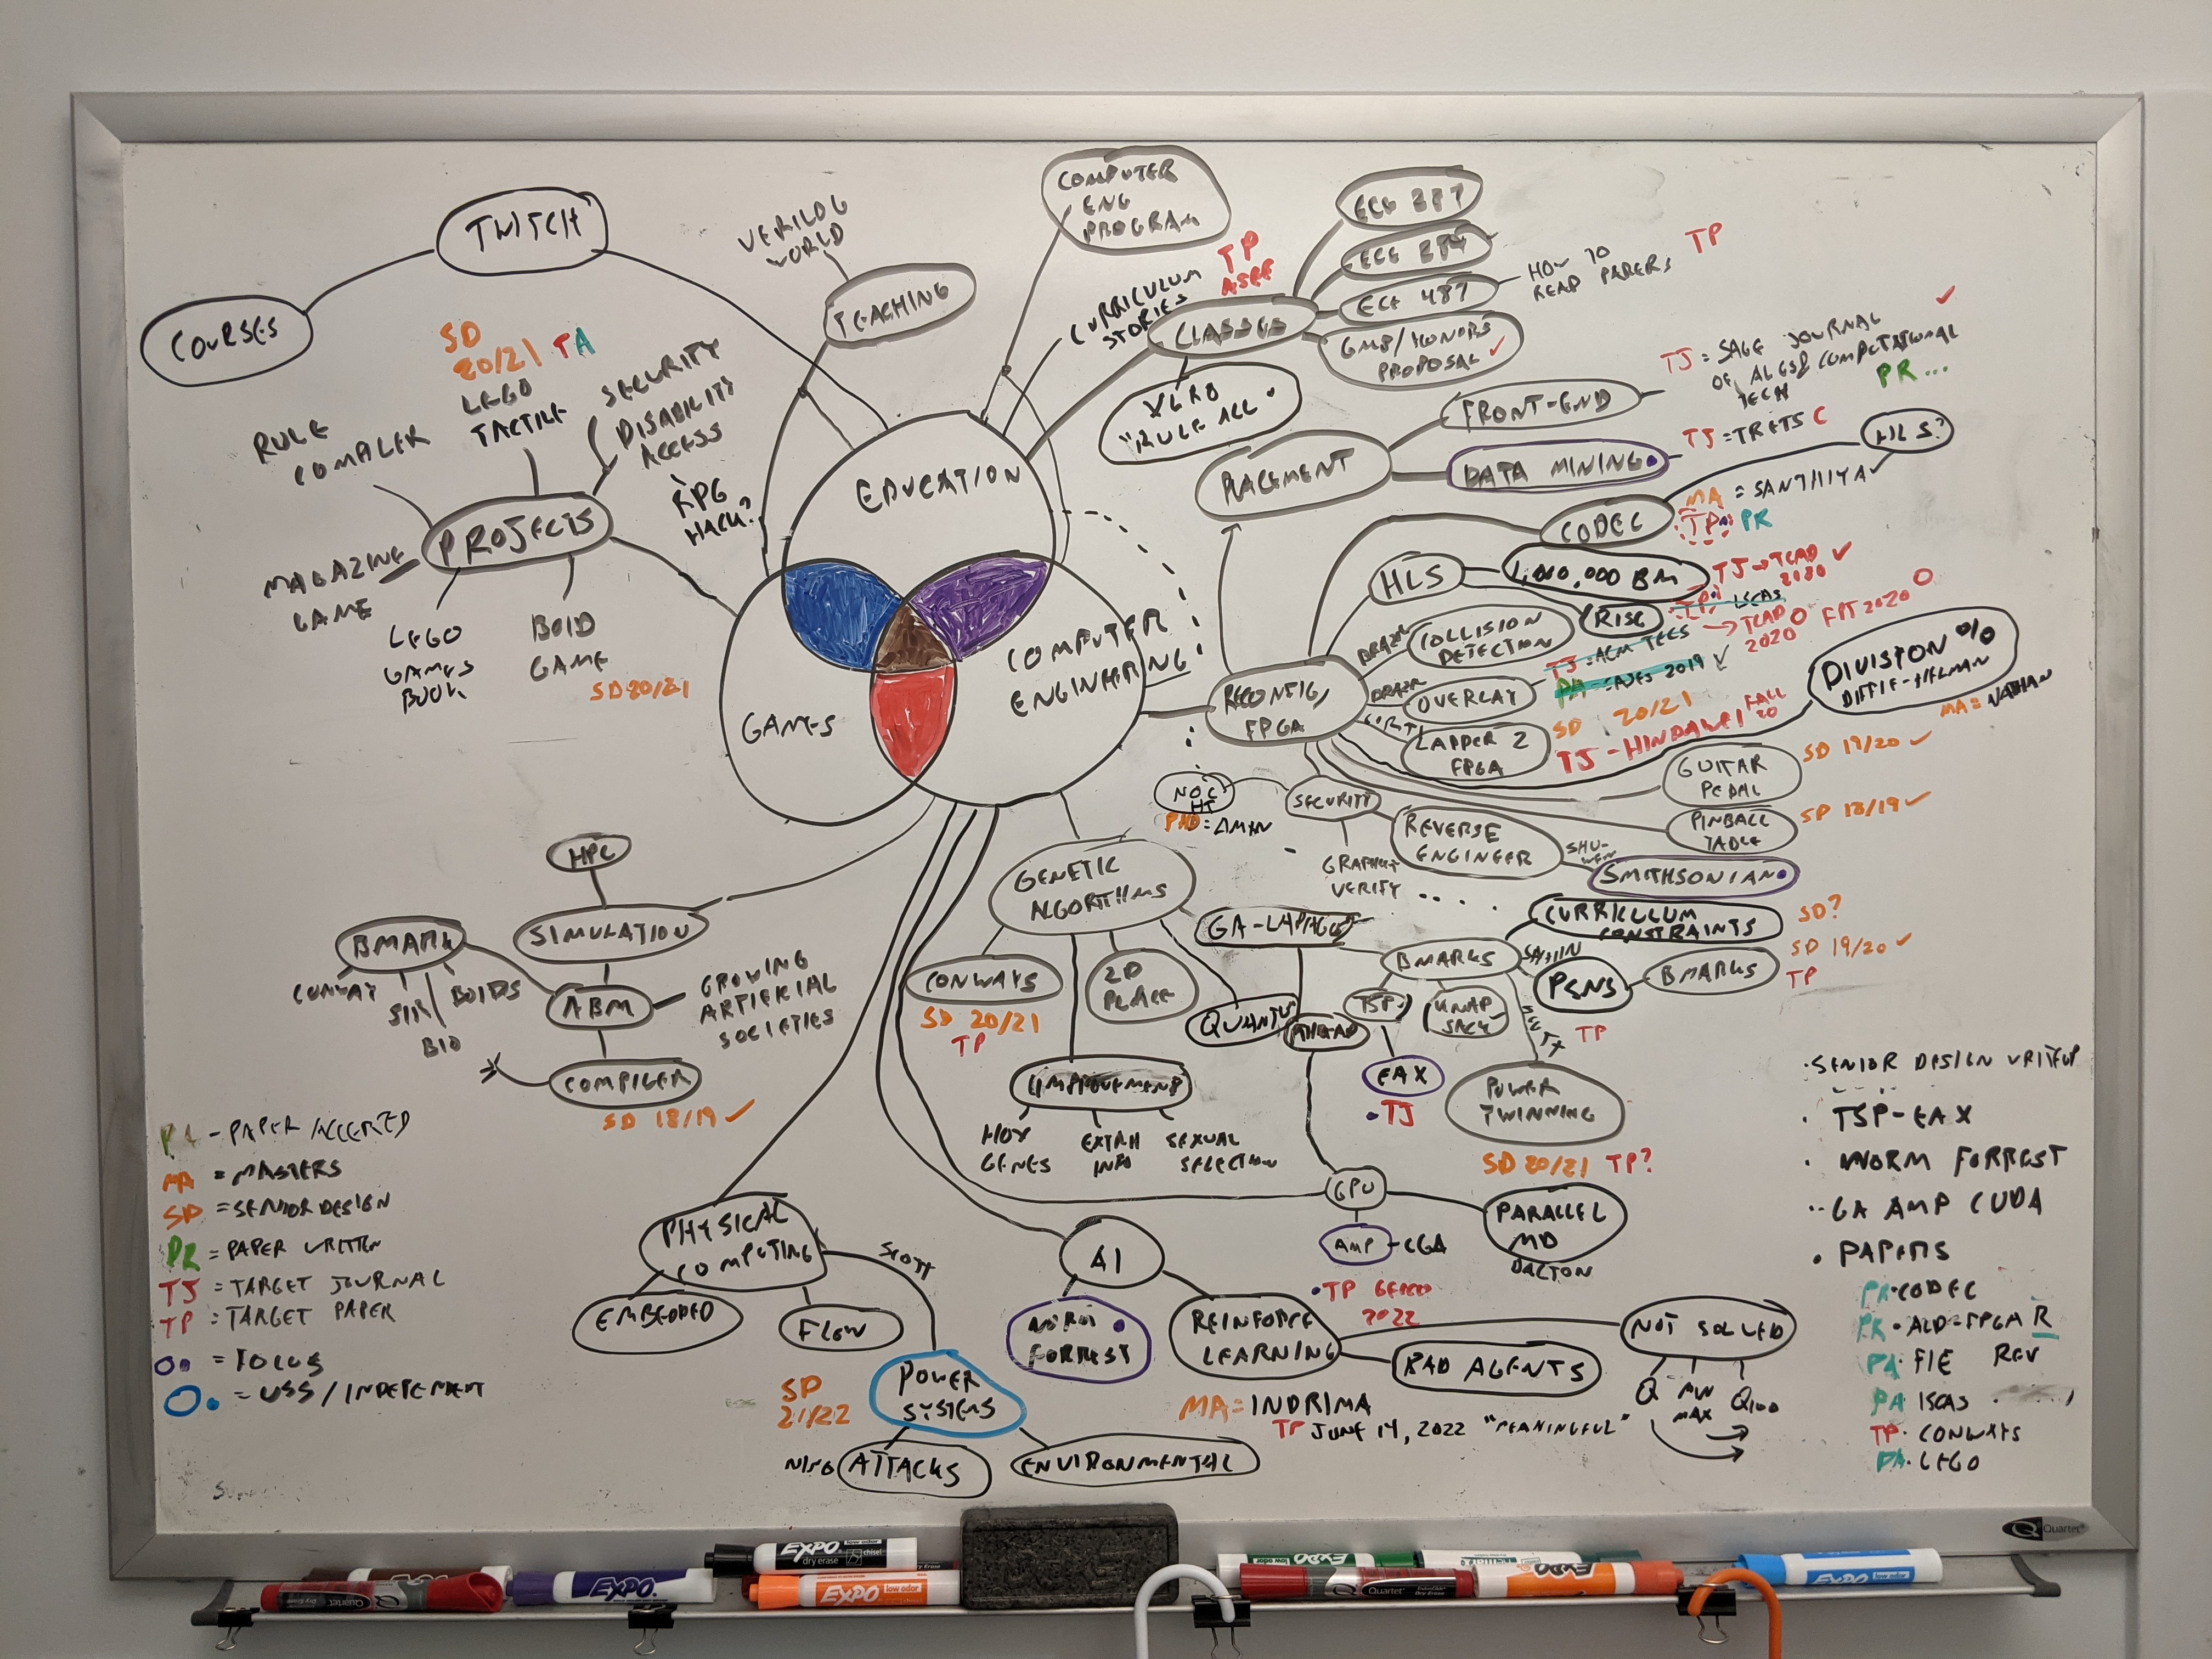 TWITCH
COURSES
VERILOG
WORLD
TEACHING
COMPUTER
ENG
PROGRAM
CURRICULUM
STORIES
TP
ASEE
CLASSES
ECE 287
ECE 487
HOW TO
READ PAPERS
TP
PROPOSAL ✓
"RULE ALL"
SD
20/21 TA
LEGO
TACTILE
SECURITY
DISABILITY
ACCESS
RPG
HACK?
RULE
COMPILER
PROJECTS
MAGAZINE
GAME
LEGO
GAMES
BOOK
BOID
GAME
SD 20/21
EDUCATION
GAMES
COMPUTER
ENGINEERING
PLACEMENT
FRONT-END
TJ = SAGE JOURNAL
OF ALGS & COMPUTATIONAL
TECH
PR...
DATA MINING
TJ = TRETS C
HLS?
CODEC
MA = SANTHIYA
TP PR
HLS
1,000,000 BM
TJ → TCAD
2020 ✓
RISC
TP ISCAS
BRAZIL
COLLISION
DETECTION
TJ - ACM TECS → TCAD O FPT 2020 O
2020
BRAZIL
OVERLAY
PA - 2019 ✓
RECONFIG/
FPGA
LADDER 2
FPGA
SD 20/21
TJ - HINDAWI FALL
20
DIVISION %
DIFFIE-HELMAN
MA = NATHAN
GUITAR
PEDAL
SD 19/20 ✓
PINBALL
TABLE
SD 18/19 ✓
NOC
HT
PHD = AMAN
SECURITY
GRAPH
VERIFY
REVERSE
ENGINEER
SHU-
WEN
SMITHSONIAN
GENETIC
ALGORITHMS
CONWAYS
SD 20/21
TP
2D
PLACE
QUANTUM
IMPROVEMENTS
HOX
GENES
EXTRA
INFO
SEXUAL
SELECTION
BMARKS
CURRICULUM
CONSTRAINTS
SD?
PSNS
BMARKS
SD 19/20 ✓
TP
TP
TSP
KNAP
SACK
EAX
TJ
POWER
TWINNING
SD 20/21 TP?
GPU
AMP - CGA
TP GECCO
2022
PARALLEL
MD
DALTON
HPC
SIMULATION
BMARK
COMBAT
SIR
BIO
BOIDS
ABM
GROWING
ARTIFICIAL
SOCIETIES
COMPILER
SD 18/19 ✓
PHYSICAL
COMPUTING
EMBEDDED
FLOW
SCOTT
POWER
SYSTEMS
SD
21/22
ATTACKS
ENVIRONMENTAL
AI
WORM
FORREST
REINFORCE
LEARNING
MA = INDRIMA
TP JUNE 14, 2022 "MEANINGFUL"
BAD AGENTS
NOT SOLVED
Q
MAX
Q100
PA - PAPER ACCEPTED
MA = MASTERS
SD = SENIOR DESIGN
PR = PAPER WRITTEN
TJ = TARGET JOURNAL
TP = TARGET PAPER
= FOCUS
= USS / INDEPENDENT
· SENIOR DESIGN WRITEUP
· TSP-EAX
· WORM FORREST
·· GA AMP CUDA
· PAPERS
PA · CODEC
PR · FPGA R
PA · FIE REV
PA ISCAS
TP · CONWAYS
PA · LEGO
Quartet
EXPO
low odor
dry erase
chisel
EXPO
EXPO
low odor
Quartet
EXPO
low odor
Quartet
EXPO
EXPO
low odor